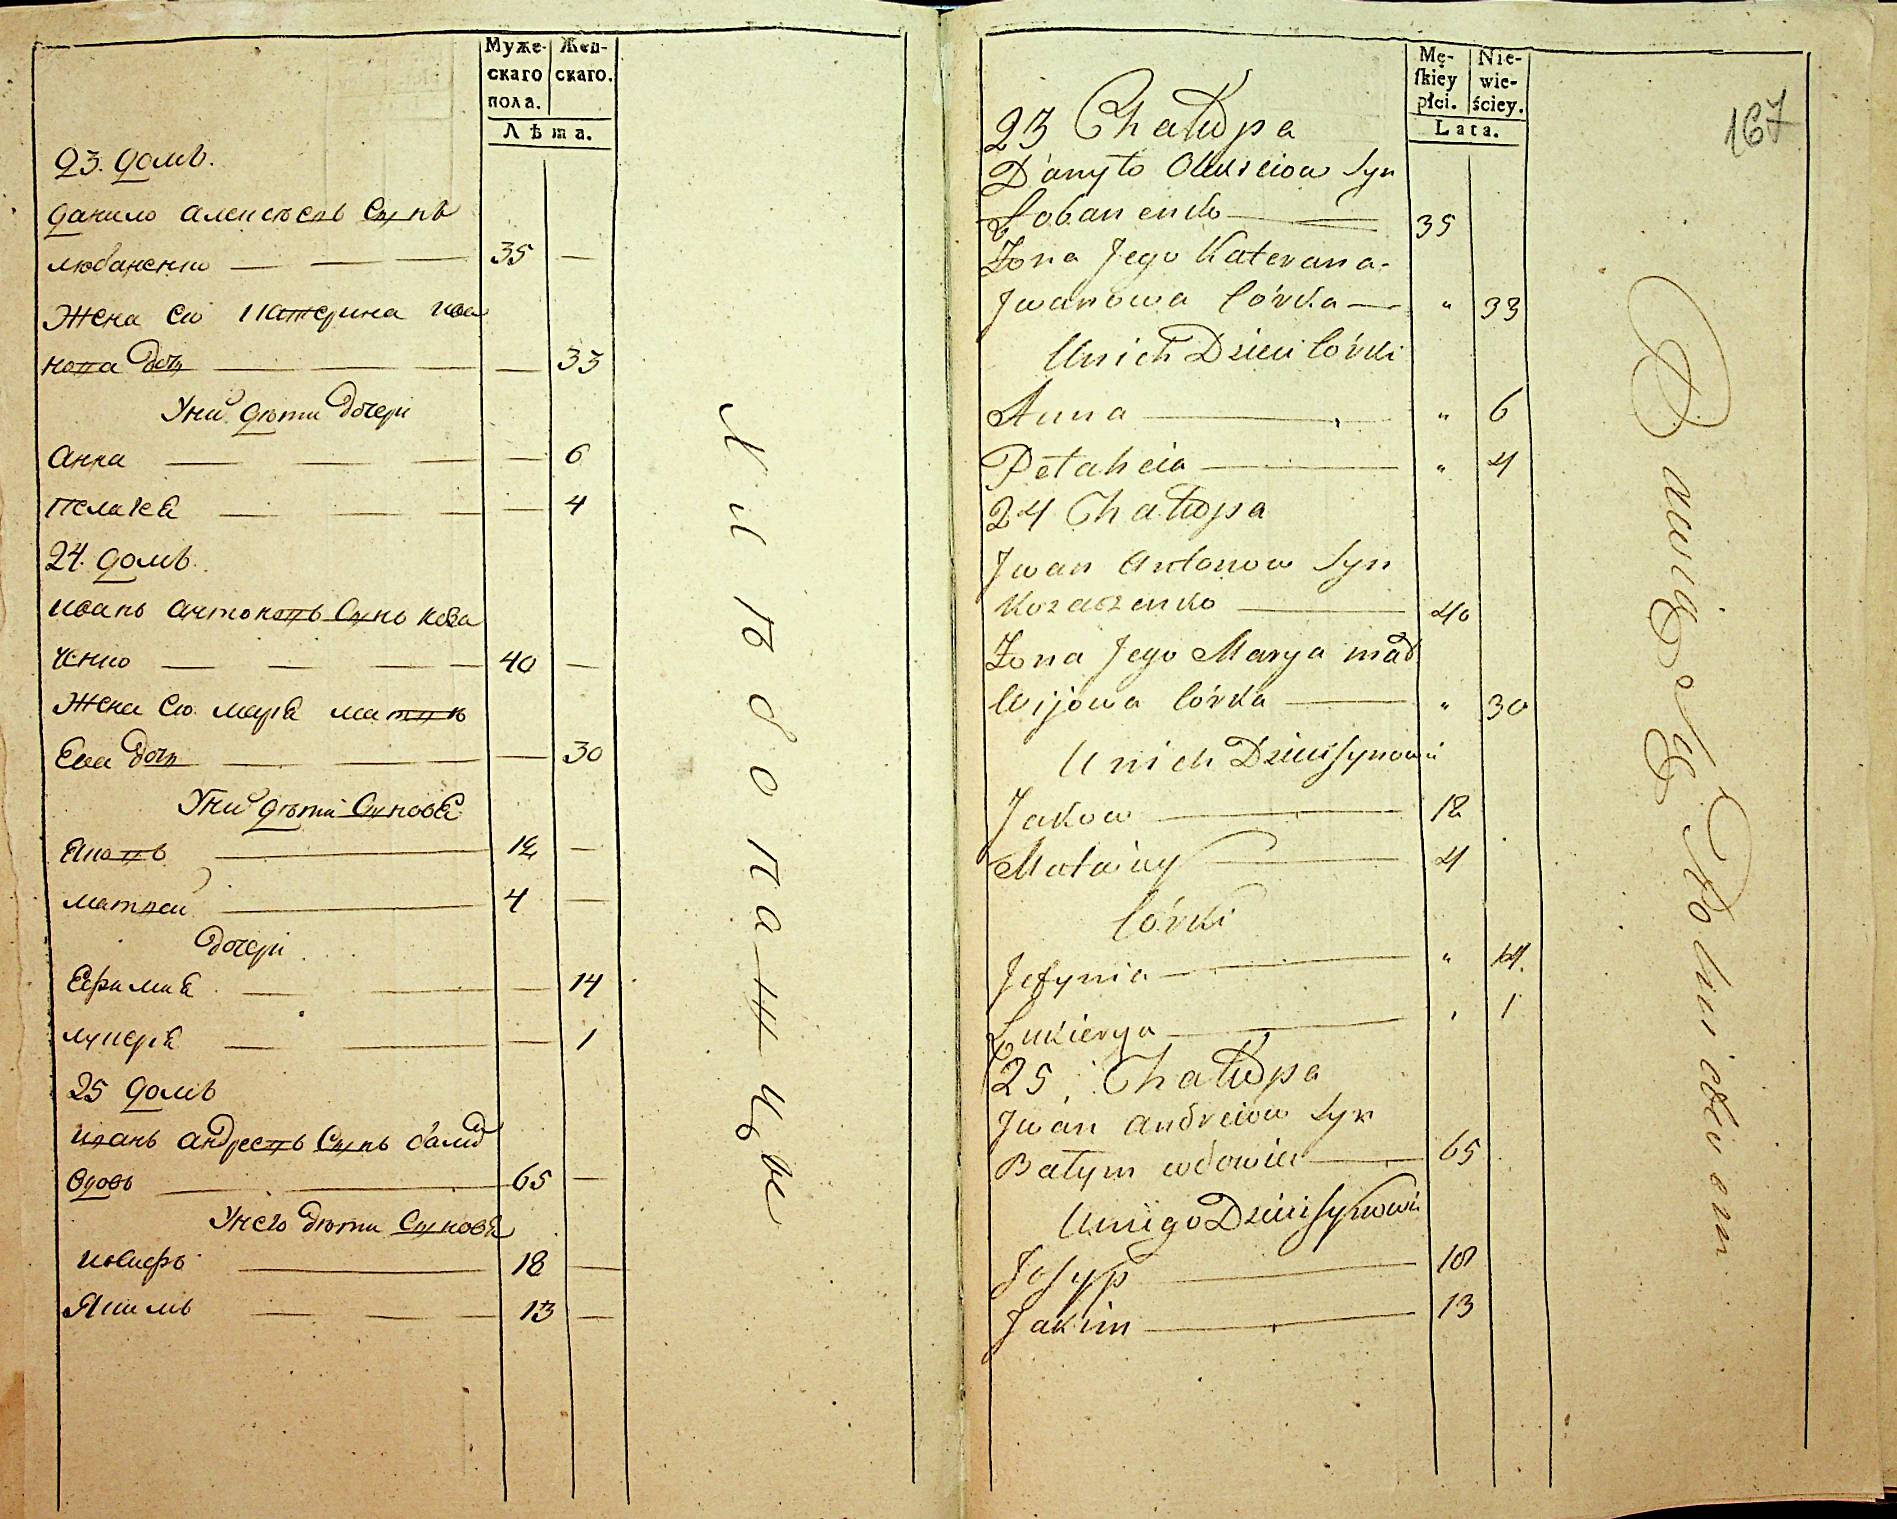 Муже-
скаго
пола.
Жен-
скаго.
Лѣта.
23. домъ.
данило алексѣевъ сынъ
любаненко 35
Жена ево катерина ива
нова дочь 33
У ни дѣти дочери
анна 6
пелагея 4
24. домъ.
иванъ антоновъ сынъ коза
ченко 40
Жена ево маря матвѣ
ева дочь 30
У ни дѣти сыновя
яковъ 12
матвей 4
дочери
Ефимия 14
лукеря 1
25 домъ
иванъ андреевъ сынъ
вдовъ 65
У него дѣти сыновя
иосифъ 18
Якимъ 13
Мę-
skiey
płci.
Nie-
wie-
ściey.
Lata.
167
23 Chałupa
Danyło Olexieiow Syn
Łobanenko 35
Żona Jego Katerana
Jwanowa Córka " 33
Unich Dzieci Córki
Anna " 6
Pełaheia " 4
24 Chałupa
Jwan Antonow Syn
Kozaczenko 40
Żona Jego Marya mad
wijowa Córka " 30
Unich Dzieci Synowie
Jakow 12
Matwiey 4
Córki
Jefymia " 14.
Łukierya " 1
25 Chałupa
Jwan Andreiow Syn
Bałym wdowiec 65
Uniego Dzieci Synowie
Josyp 18
Jakim 13